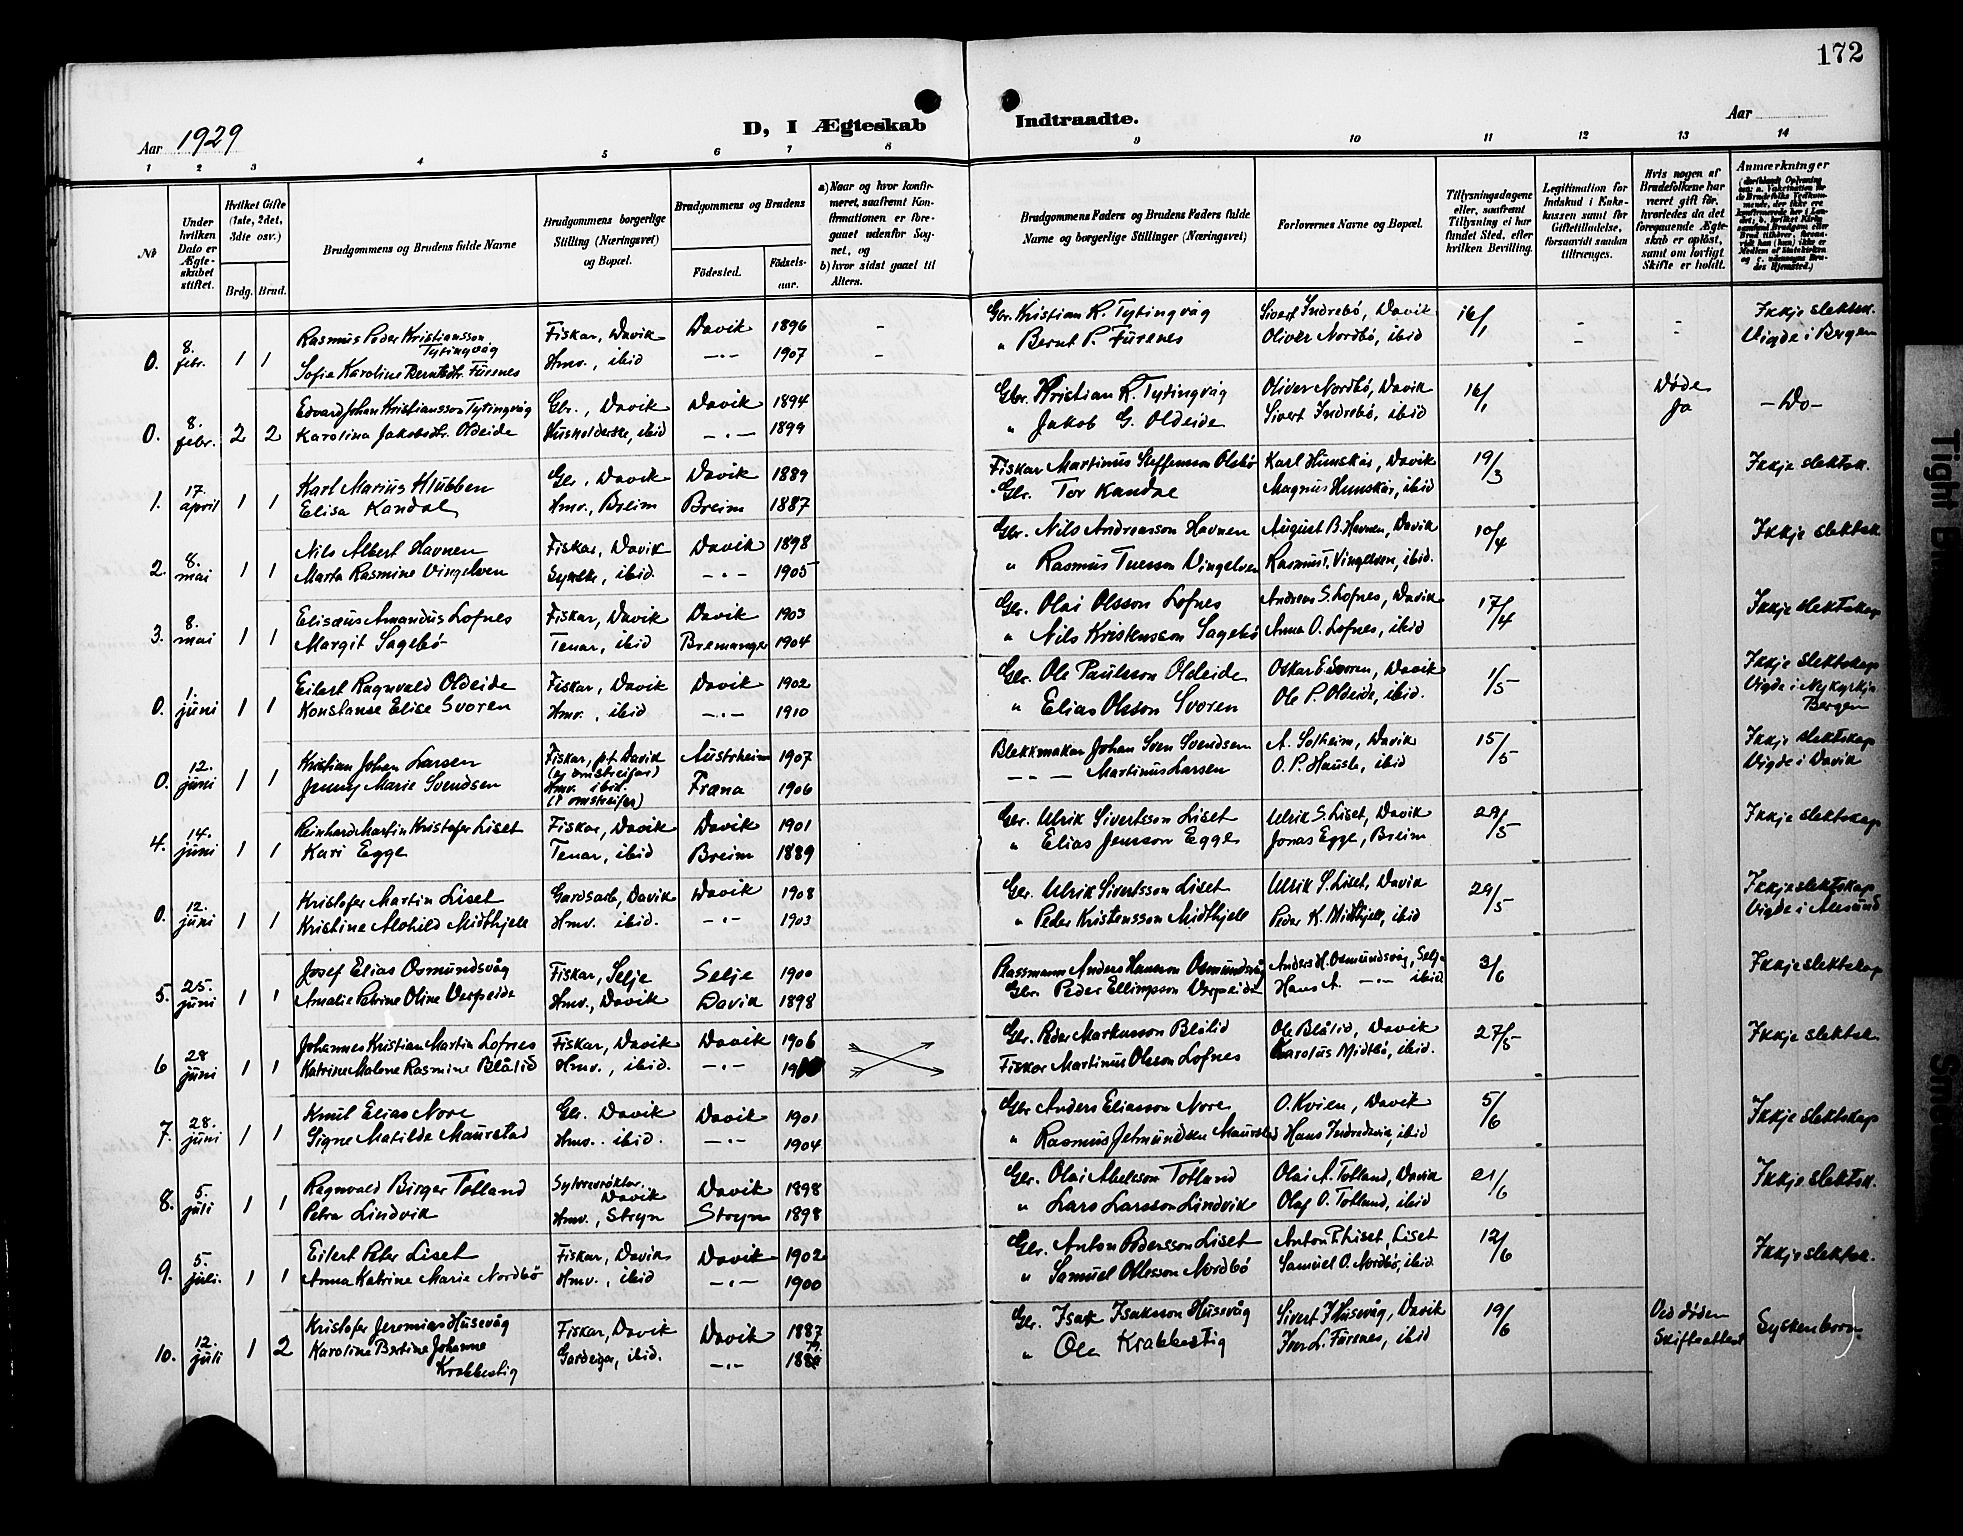 172
Aar 1929
D, I Ægteskab Indtraadte.
Aar
1 2 3 4 5 6 7 8 9 10 11 12 13 14
No
Under hvilken Dato er Ægteskabet stiftet.
Hvilket Gifte (1ste, 2det, 3die osv.)
Brdg. Brud.
Brudgommens og Brudens fulde Navne
Brudgommens borgerlige Stilling (Næringsvei) og Bopæl.
Brudgommens og Brudens
Födested.
Födselsaar.
a) Naar og hvor konfirmeret, saafremt Konfirmationen er foregaaet udenfor Sognet, og
b) hvor sidst gaaet til Alters.
Brudgommens Faders og Brudens Faders fulde Navne og borgerlige Stillinger (Næringsvei)
Forlovernes Navne og Bopæl.
Tillysningsdagene eller, saafremt Tillysning ei har fundet Sted, efter hvilken Bevilling.
Legitimation for Indskud i Enkekassen samt for Giftetilladelse, forsaavidt saadan tiltrænges.
Hvis nogen af Brudefolkene har været gift för, hvorledes da det foregaaende Ægteskab er oplöst, samt om lovligt Skifte er holdt.
Anmærkninger
0. 8. febr. 1 1 Rasmus Peder Kristiansson Tytingvåg Fiskar, Davik Davik 1896 - Gbr. Kristian K. Tytingvåg Sivert Indrebö, Davik 16/1 - - Ikkje slektsk.
Sofie Karoline Berntsdtr. Furenes Hmv., ibid -"- 1907 - " Bernt P. Furenes Oliver Nordbö, ibid - - Vigde i Bergen
0. 8. febr. 2 2 Edvard Johan Kristiansson Tytingvåg Gbr., Davik Davik 1894 Gbr. Kristian K. Tytingvåg Oliver Nordbö, Davik 16/1 Döde -Do-
Karolina Jakobsdtr. Oldeide Husholderske, ibid -"- 1899 " Jakob G. Oldeide Sivert Indrebö, ibid Ja
1. 17. april 1 1 Karl Marius Klubben Gbr, Davik Davik 1889 Fiskar Martinus Steffensson Olsbö Karl Hunskår, Davik 19/3 Ikkje slektsk.
Elisa Kandal Hmv., Breim Breim 1887 Gbr. Tor Kandal Magnus Hunskår, ibid
2. 8. mai 1 1 Nils Albert Havnen Fiskar, Davik Davik 1898 Gbr. Nils Andreasson Havnen August B. Havnen, Davik 10/4 Ikkje slektsk
Marta Rasmine Vingelven ibid. -"- 1905 " Rasmus Vingelven Rasmus T. Vingelven, ibid.
3. 8. mai 1 1 Elisæus Amandus Lofnes Fiskar, Davik Davik 1903 Gbr. Olai Olsson Lofnes Andreas S. Lofnes, Davik 17/4 Ikkje slektskap
Margit Sagebö Tenar, ibid Bremanger 1904 " Nils Kristensson Sagebö Anna O. Lofnes, ibid
0. 1. juni 1 1 Eilert Ragnvald Oldeide Fiskar, Davik Davik 1902 Gbr. Ole Paulsson Oldeide Oskar E. Svoren, Davik 1/5 Ikkje slektskap
Konstanse Elise Svoren Hmv., ibid -"- 1910 " Elias Olsson Svoren Ole P. Oldeide, ibid. Vigde i Nykyrkja Bergen
0. 12. juni 1 1 Kristian Johan Larsen Fiskar, p.t. Davik (ey omstreifar) Austrheim 1907 Blekkmakar Johan Sven Svendsen A. Solheim, Davik 15/5 Ikkje slektskap
Jenny Marie Svendsen Hmv. ibid. omstreifar) Fræna 1906 -"- Martinus Larsen O. P. Hausle, ibid Vigde i Davik
4. 14. juni 1 1 Reinhard Martin Kristofer Liset Fiskar, Davik Davik 1901 Gbr. Ulrik Sivertsson Liset Ulrik S. Liset, Davik 29/5 Ikkje slektskap
Kari Egge Tenar, ibid Breim 1889 " Elias Jensson Egge Jonas Egge, Breim
0. 12. juni 1 1 Kristofer Martin Liset Gardsarb, Davik Davik 1908 Gbr. Ulrik Sivertsson Liset Ulrik S. Liset, Davik 29/5 Ikkje slektskap
Kristine Alvhild Midthjell Hmv. ibid. -"- 1903 " Peder Kristensson Midthjell Peder K. Midthjell, ibid Vigde i Ålesund
5. 25. juni 1 1 Josef Elias Osmundsvåg Fiskar, Selje Selje 1900 Plassmann Anders Hansson Osmundsvåg Anders H. Osmundsvåg, Selje 3/6 Ikkje slektskap
Amalie Petrine Oline Verpeide Hmv., Davik Davik 1898 Gbr. Peder Ellingsson Verpeide Hans A. -"- ibid
6 28 juni 1 1 Johannes Kristian Martin Lofnes Fiskar, Davik Davik 1906 Gbr. Peder Markusson Blålid Ole Blålid, Davik 27/5 Ikkje slektsk
Katrine Malene Rasmine Blålid Hmv., ibid. -"- Fiskar Martinus Olsson Lofnes Karolus Midtbö, ibid.
7. 28. juni 1 1 Knut Elias Nore Gbr. Davik Davik 1901 Gbr Anders Eliasson Nore O. Kvien, Davik 5/6 Ikkje slektskap
Signe Matilde Maurstad Hmv. ibid. -"- 1904 " Rasmus Jetmundsen Maurstad Hans Indredavik, ibid
8. 5. juli 1 1 Ragnvald Birger Totland Davik Davik 1898 Gbr. Olai Abelsson Totland Olai A. Totland, Davik 21/6 Ikkje slektsk.
Petra Lindvik Hmv., Stryn Stryn 1898 " Lars Larsson Lindvik Olaf O. Totland, ibid
9. 5. juli. 1 1 Eilert Peter Liset Fiskar, Davik Davik 1902 Gbr. Anton Pedersson Liset Anton P. Liset Liset 12/6 Ikkje slektsk.
Anna Katrine Marie Nordbö Hmv., ibid -"- 1900 " Samuel Ollesson Nordbö Samuel O. Nordbö, ibid
10. 12. juli 1 2 Kristofer Jeremias Husevåg Fiskar, Davik Davik 1887 Gbr. Isak Isaksson Husevåg Sivert J Husevåg, Davik 19/6 Ved döden Syskenborn
Karoline Bertine Johanne Krabbestig Gardeigar, ibid. -"- " Ole Krabbestig Iver L. Furenes, ibid Skifteattest
Tight